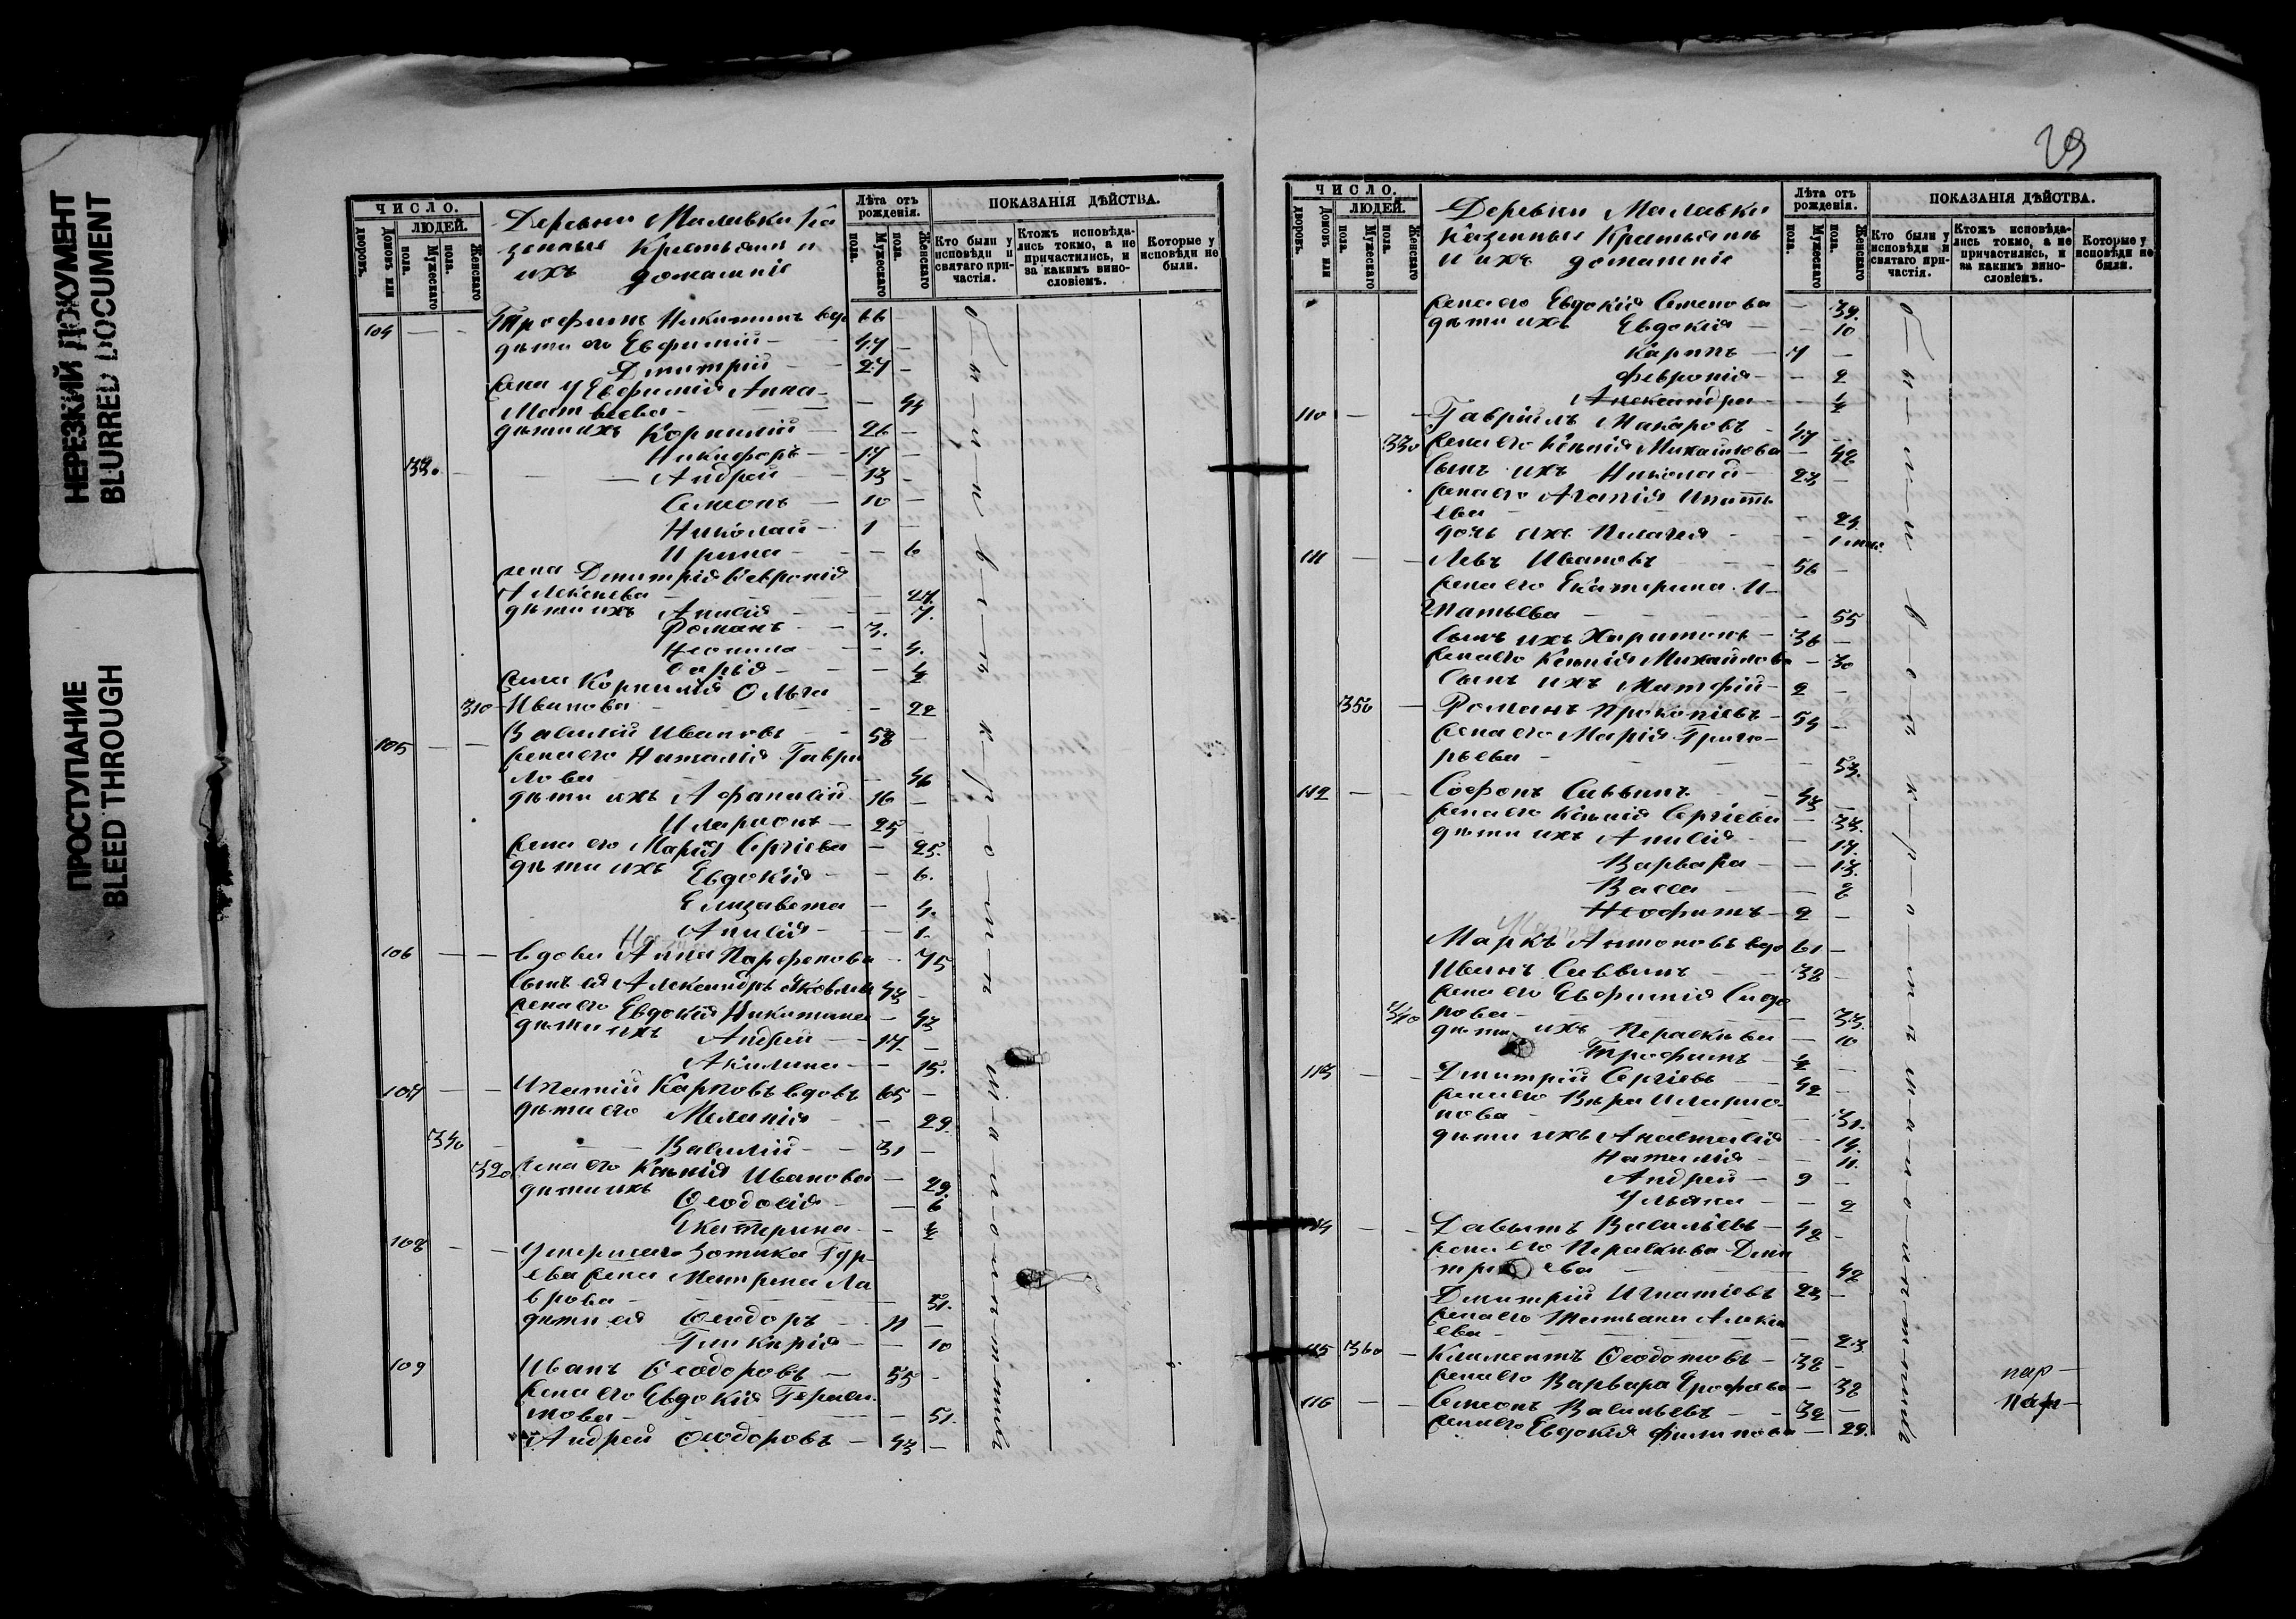 НЕРЕЗКИЙ ДОКУМЕНТ
BLURRED DOCUMENT
ПРОСТУПАНИЕ
BLEED THROUGH
ЧИСЛО.
ЛЮДЕЙ.
Домовъ или дворовъ.
Мужескаго пола.
Женскаго пола.
Деревни Малавки Ка
зенные крестьяне и
ихъ домашніе
Лѣта отъ рожденія.
Мужескаго пола.
Женскаго пола.
ПОКАЗАНІЯ ДѢЙСТВА.
Кто были у исповѣди и святаго причастія.
Ктожъ исповѣдались токмо, а не причастились, и за какимъ винословіемъ.
Которые у исповѣди не были.
104 — — Трофимъ Никитинъ вдо 66 —
дѣти его Евфимій — 47 —
Димитрій — 27 —
жена у Евфимія Анна
Матвеева — — 44
дѣти ихъ Корнилій — 26 —
Никифоръ — 17 —
330 — Андрей — 13 —
Симеонъ — 10 —
Николай — 1 —
Ирина — — 6
жена Димитрія Февронія
Алексеева — — 27.
дѣти ихъ Анисія — — 7.
Романъ — 3.
Неонила — — 4.
Дарія — — ½
жена Корнилія Ольга
310 Иванова — — 22
105 — — Василій Ивановъ — 58 —
жена его Наталія Гаври
лова — — 46
дѣти ихъ Афанасій 16 —
Иларіонъ — 25 —
жена его Марія Сергіева — 25.
дѣти ихъ Евдокія — — 6.
Елизавета — 4.
Анисія — — 1.
106 — — вдова Анна Парфенова — 75
сынъ ея Александръ Яковлевъ 43 —
жена его Евдокія Никитина — 43
дѣти ихъ Андрей — 17 —
Акилина — — 15.
107 — — Ипатій Карповъ вдовъ 65 —
дѣти его Меланія — — 29.
340 — Василій — 31 —
320 жена его Ксенія Иванова — 29.
дѣти ихъ Ѳеодосія — — 6
Екатерина — — ½
108 — — Умершаго Зотика Гур-
ева жена Матрена Ла
врова — — 31.
дѣти ея Ѳеодоръ — 11 —
Гликерія — — 10
109 Иванъ Ѳеодоровъ — 55 —
жена его Евдокія Гераси-
мова — — 51.
Андрей Ѳеодоровъ — 43 —
29
ЧИСЛО.
ЛЮДЕЙ.
Домовъ или дворовъ.
Мужескаго пола.
Женскаго пола.
Деревни Малавки
Казенные Крестьяне
и ихъ домашніе
Лѣта отъ рожденія.
Мужескаго пола.
Женскаго пола.
ПОКАЗАНІЯ ДѢЙСТВА.
Кто были у исповѣди и святаго причастія.
Ктожъ исповѣдались токмо, а не причастились, и за какимъ винословіемъ.
Которые у исповѣди не были.
жена его Евдокія Семенова — 39.
дѣти ихъ Евдокія — — 10
Карпъ — 7 —
Февронія — — 2
Александра — — ½
110 — — Гавріилъ Макаровъ — 47 —
330 жена его Ксенія Михайлова — 42
сынъ ихъ Николай — 23 —
жена его Агапія Ипать
ева — — 23.
дочь ихъ Пелагія — —
111 — — Левъ Ивановъ — 56 —
жена его Екатерина И-
патьева — — 55
сынъ ихъ Харитонъ — 36 —
жена его Ксенія Михайлова — 30
сынъ ихъ Матфій — 2 —
350 — Романъ Прокопіевъ — 54 —
жена его Марія Григо-
рьева — — 53.
112 — — Софонъ Саввинъ — 43 —
жена его Ксенія Сергіева — 33.
дѣти ихъ Анисія — — 17.
Варвара — — 13.
Васса — — 8
Неофитъ — 2 —
Маркъ Антоновъ вдо 61 —
Иванъ Саввинъ — 38 —
жена его Евфимія Сидо
340 рова — — 33.
дѣти ихъ Параскева — 10
Трофимъ — ½ —
113 — — Димитрій Сергіевъ — 42 —
жена его Вѣра Иларіо-
нова — — 31.
дѣти ихъ Анастасія — 14.
Наталія — — 11.
Андрей — 9 —
Ульяна — — 2
114 — — Давыдъ Васильевъ — 42 —
жена его Параскева Дими
тріева — — 42
Димитрій Игнатіевъ 23 —
жена его Татьяна Алексе
ева — — 23
115 360 — Климентъ Ѳеодотовъ — 38 —
жена его Варвара Ерофеева — 38
116 — — Симеонъ Васильевъ — 32 —
жена его Евдокія Филипова — 29.